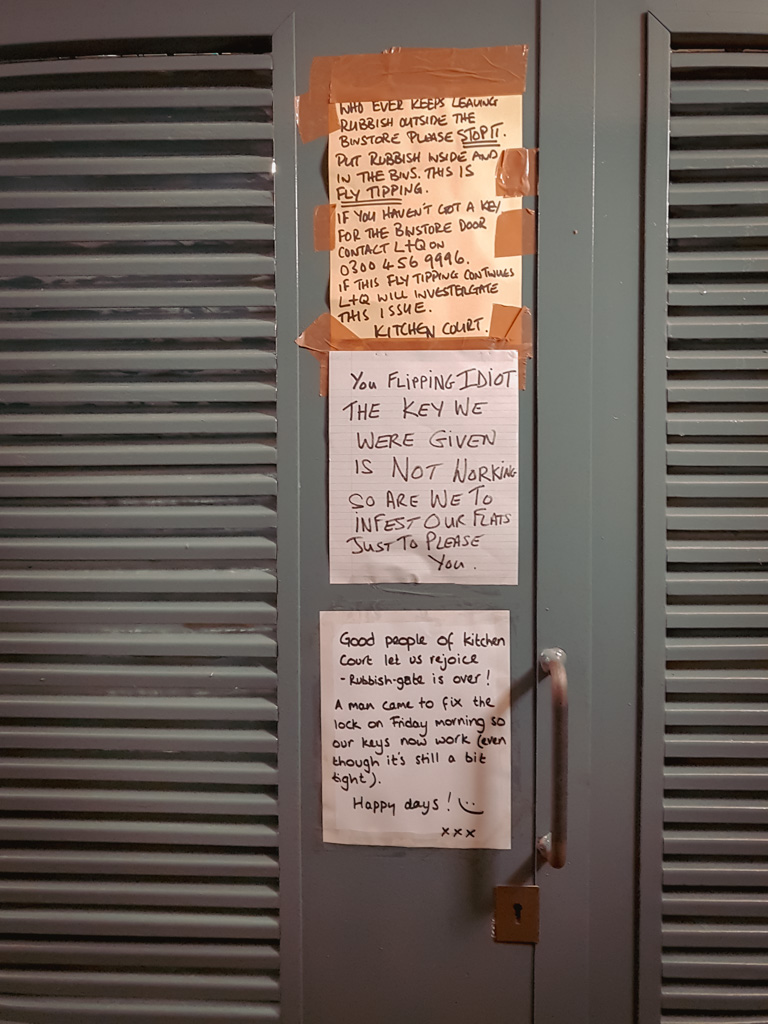 WHO EVER KEEPS LEAVING
RUBBISH OUTSIDE THE
BINSTORE PLEASE STOP IT.
PUT RUBBISH INSIDE AND
IN THE BINS. THIS IS
FLY TIPPING.
IF YOU HAVEN'T GOT A KEY
FOR THE BINSTORE DOOR
CONTACT L+Q ON
0300 456 9996.
IF THIS FLY TIPPING CONTINUES
L+Q WILL INVESTERGATE
THIS ISSUE.
KITCHEN COURT.
YOU FLIPPING IDIOT
THE KEY WE
WERE GIVEN
IS NOT WORKING
SO ARE WE TO
INFEST OUR FLATS
JUST TO PLEASE
YOU.
Good people of kitchen
Court let us rejoice
- Rubbish-gate is over!
A man came to fix the
lock on Friday morning so
our keys now work (even
though it's still a bit
tight).
Happy days!
xxx